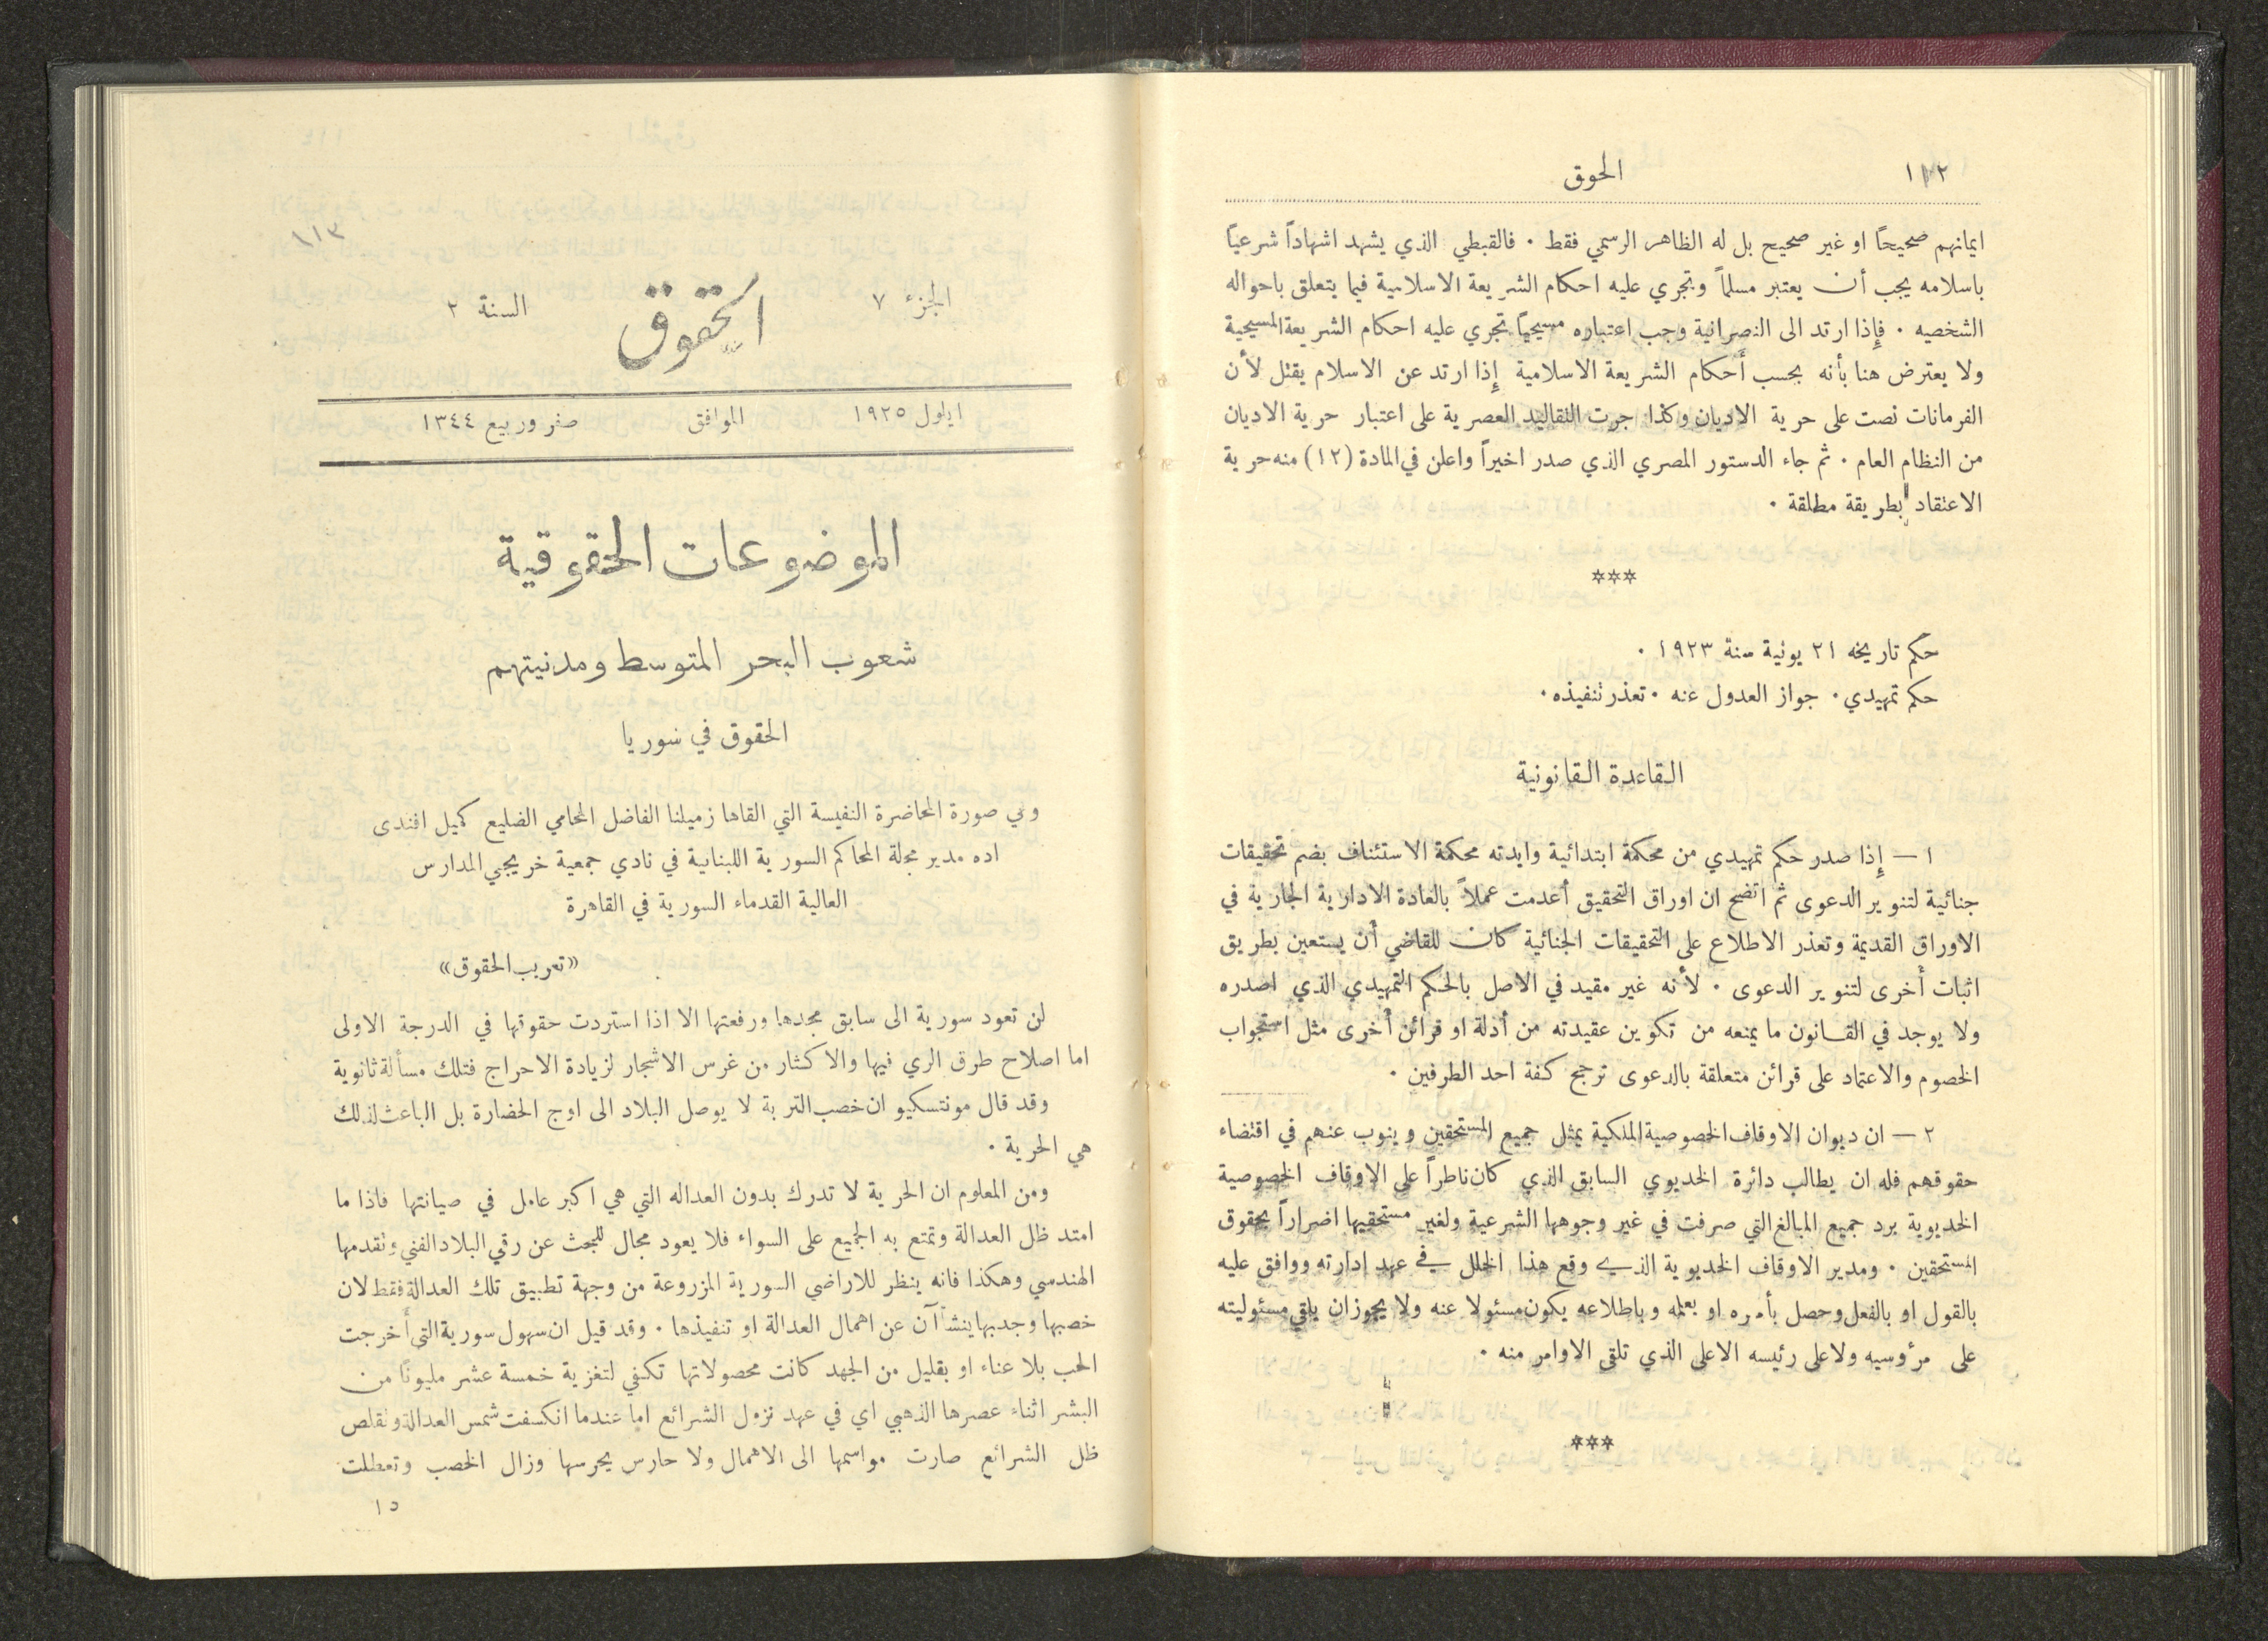 ١١٢
الحوق
ايمانهم صحيحاً او غير صحيح بل له الظاهر الرسمي فقط . فالقبطي الذي يشهد اشهاداً شرعياً
باسلامه يجب أن يعتبر مسلماً وتجري عليه احكام الشريعة الاسلامية فيما يتعلق باحواله
الشخصيه . فإذا ارتد الى النصرانية وجب اعتباره مسيحياً تجري عليه احكام الشريعة المسيحية
ولا يعترض هنا بأنه بحسب أحكام الشريعة الاسلامية إذا ارتد عن الاسلام يقتل لأن
الفرمانات نصت على حرية الاديان وكذا جرت التقاليد العصرية على اعتبار حرية الاديان
من النظام العام . ثم جاء الدستور المصري الذي صدر اخيراً واعلن في المادة (١٢) منه حرية
الاعتقاد بطريقة مطلقة .
***
حكم تاريخه ٢١ يونية سنة ١٩٢٣ .
حكم تمهيدي . جواز العدول عنه . تعذر تنفيذه .
القاعدة القانونية
١ — إذا صدر حكم تمهيدي من محكمة ابتدائية وايدته محكمة الاستئناف بضم تحقيقات
جنائية لتنوير الدعوى ثم اتضح ان اوراق التحقيق أعدمت عملاً بالعادة الادارية الجارية في
الاوراق القديمة وتعذر الاطلاع على التحقيقات الجنائية كان للقاضي أن يستعين بطريق
اثبات أخرى لتنوير الدعوى . لأنه غير مقيد في الاصل بالحكم التمهيدي الذي اصدره
ولا يوجد في القانون ما يمنعه من تكوين عقيدته من أدلة او قرائن أخرى مثل استجواب
الخصوم والاعتماد على قرائن متعلقة بالدعوى ترجح كفة احد الطرفين .
٢ — ان ديوان الاوقاف الخصوصية الملكية يمثل جميع المستحقين وينوب عنهم في اقتضاء
حقوقهم فله ان يطالب دائرة الخديوي السابق الذي كان ناظراً على الاوقاف الخصوصية
الخديوية برد جميع المبالغ التي صرفت في غير وجوهها الشرعية ولغير مستحقيها اضراراً بحقوق
المستحقين . ومدير الاوقاف الخديوية الذي وقع هذا الخلل في عهد إدارته ووافق عليه
بالقول او بالفعل وحصل بأمره او بعلمه وباطلاعه يكون مسئولا عنه ولا يجوز ان يلقي مسئوليته
على مرؤسيه ولا على رئيسه الاعلى الذي تلقى الاوامر منه .
***
١١٣
الجزء ٧
الحقوق
السنة ٢
ايلول ١٩٢٥ الموافق صفر وربيع ١٣٤٤
الموضوعات الحقوقية
شعوب البحر المتوسط ومدنيتهم
الحقوق في سوريا
وهي صورة المحاضرة النفيسة التي القاها زميلنا الفاضل المحامي الضليع كميل افندى
اده مدير مجلة المحاكم السورية اللبنانية في نادي جمعية خريجي المدارس
العالية القدماء السورية في القاهرة
«تعريب الحقوق»
لن تعود سورية الى سابق مجدها ورفعتها الا اذا استردت حقوقها في الدرجة الاولى
اما اصلاح طرق الري فيها والاكثار من غرس الاشجار لزيادة الاحراج فتلك مسألة ثانوية
وقد قال مونتسكيو ان خصب التربة لا يوصل البلاد الى اوج الحضارة بل الباعث لذلك
هي الحرية .
ومن المعلوم ان الحرية لا تدرك بدون العداله التي هي اكبر عامل في صيانتها فاذا ما
امتد ظل العدالة وتمتع به الجميع على السواء فلا يعود مجال للبحث عن رقي البلاد الفني وتقدمها
الهندسي وهكذا فانه ينظر للاراضي السورية المزروعة من وجهة تطبيق تلك العدالة فقط لان
خصبها وجدبها ينشأآن عن اهمال العدالة او تنفيذها . وقد قيل ان سهول سورية التي أخرجت
الحب بلا عناء او بقليل من الجهد كانت محصولاتها تكفي لتغزية خمسة عشر مليوناً من
البشر اثناء عصرها الذهبي اي في عهد نزول الشرائع اما عندما انكسفت شمس العدالة وتقلص
ظل الشرائع صارت مواسمها الى الاهمال ولا حارس يحرسها وزال الخصب وتعطلت
١٥